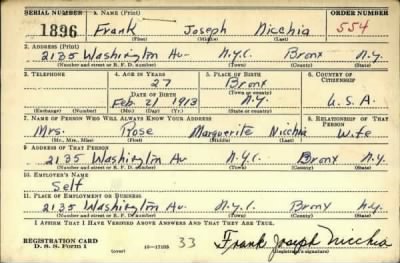 SERIAL NUMBER 1. NAME (Print) ORDER NUMBER
1896 Frank Joseph Nicchia 554
(First) (Middle) (Last)
2. ADDRESS (Print)
2135 Washington Av N.Y.C. Bronx N.Y.
(Number and street or R. F. D. number) (Town) (County) (State)
3. TELEPHONE 4. AGE IN YEARS 5. PLACE OF BIRTH 6. COUNTRY OF CITIZENSHIP
27 Bronx
DATE OF BIRTH (Town or county)
Feb 21 1913 N.Y. U.S.A.
(Exchange) (Number) (Mo.) (Day) (Yr.) (State or country)
7. NAME OF PERSON WHO WILL ALWAYS KNOW YOUR ADDRESS 8. RELATIONSHIP OF THAT PERSON
Mrs. Rose Marguerite Nicchia Wife
(Mr., Mrs., Miss) (First) (Middle) (Last)
9. ADDRESS OF THAT PERSON
2135 Washington Av N.Y.C. Bronx N.Y.
(Number and street or R. F. D. number) (Town) (County) (State)
10. EMPLOYER'S NAME
Self
11. PLACE OF EMPLOYMENT OR BUSINESS
2135 Washington Av N.Y.C. Bronx N.Y.
(Number and street or R. F. D. number) (Town) (County) (State)
I AFFIRM THAT I HAVE VERIFIED ABOVE ANSWERS AND THAT THEY ARE TRUE.
REGISTRATION CARD
D. S. S. Form 1 (over) 16—17105 33 Frank Joseph Nicchia
(Registrant's signature)